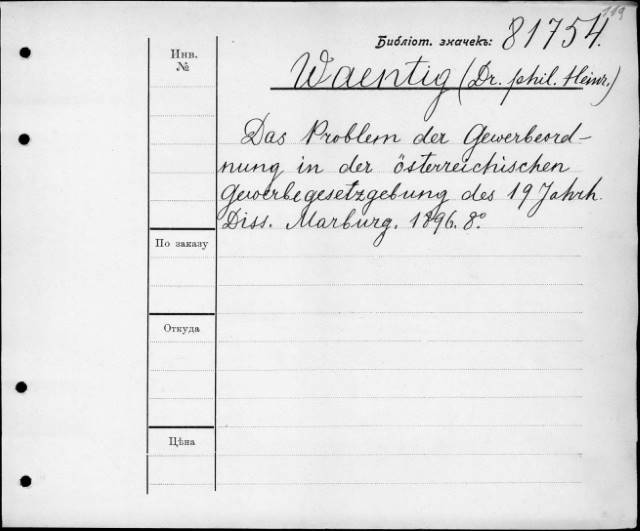 119
Библіот. значекъ: 81754.
Инв.
№
Waentig (Dr. phil. Heinr.)
Das Problem der Gewerbeord-
nung in der österreichischen
Gewerbegesetzgebung des 19 Jahrh.
Diss. Marburg. 1896. 8º
По заказу
Откуда
Цѣна